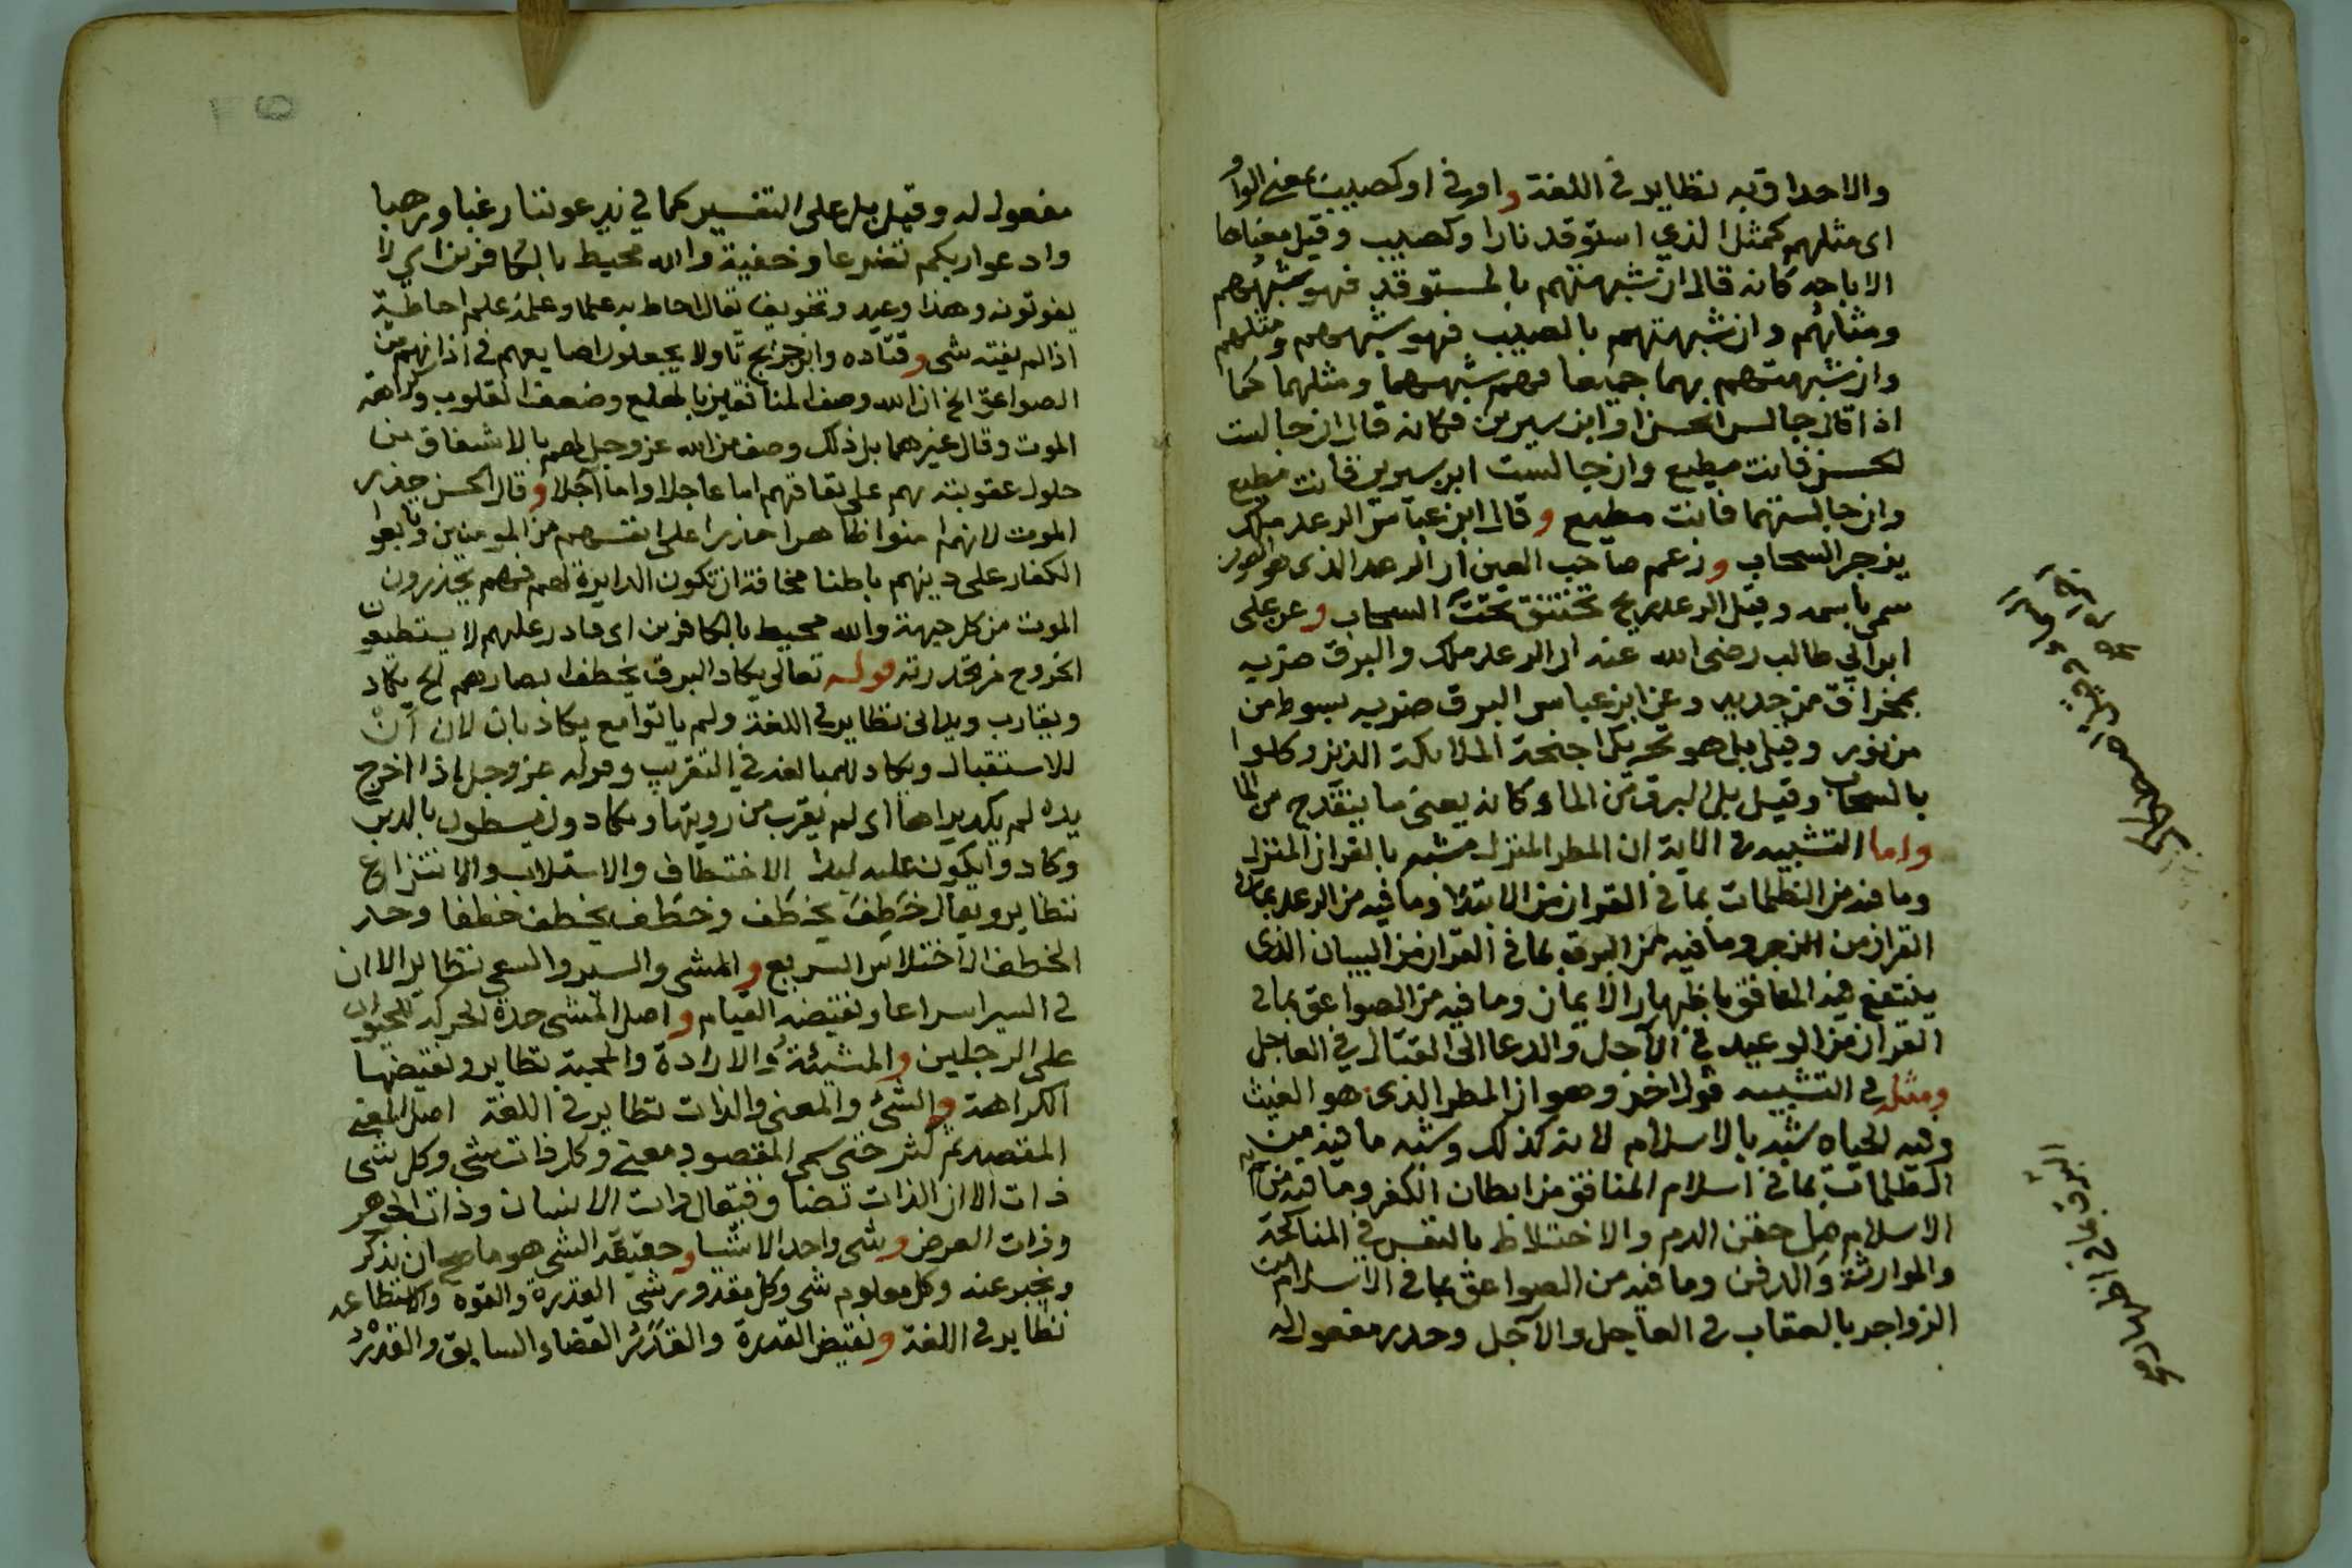 والاحداق به نظاير في اللغة واو في او كصيب بمعنى الواو
اى مثلهم كمثل الذي استوقد نارا وكصيب وقيل معناها
الاباحه كانه قال ان شبهتهم بالمستوقد فهو شبههم
ومثالهم وان شبهتهم بالصيب فهو شبههم ومثلهم
وان شبهتهم بهما جميعا فهم شبههما ومثلهما كما
اذا قال جالس الحسن او ابن سيرين فكانه قال ان جالست
لحسن فانت مطيع وان جالست ابن سيرين فانت مطيع
وان جالستهما فانت مطيع وقال ابن عباس الرعد ملك
يزجر السحاب وزعم صاحب العين ان الرعد الذى هو الصوت
سمى باسمه وقيل الرعد ريح تختنق تحت السحاب وعن على
ابن ابي طالب رضى الله عنه ان الرعد ملك والبرق ضربه
بمخراق من حديد وعن ابن عباس البرق ضربه بسوط من
من نور وقيل بل هو تحريك اجنحة الملائكة الذين وكلوا
بالسحاب وقيل بل البرق من الماء كانه يعنى ما ينقدح من الما
واما التشبيه في الاية ان المطر المنزل مشبه بالقران المنزل
وما فيه من الظلمات بما في القران من الابتلا وما فيه من الرعد بما في
القران من الزجر وما فيه من البرق بما في القران من البيان الذى
ينتفع فيه المنافق باظهار الايمان وما فيه من الصواعق بما في
القران من الوعيد في الآجل والدعا الى القتال في العاجل
ومثله في التشبيه قول اخر وهو ان المطر الذى هو الغيث
وفيه الحياه شبه بالاسلام لانه كذلك وشبه ما فيه من
الظلمات بما في اسلام المنافق من ابطان الكفر وما فيه من
الاسلام من حقن الدم والاختلاط بالنفس في المناكحة
والموارثة والدفن وما فيه من الصواعق بما في الاسلام من
الزواجر بالعقاب في العاجل والآجل وحذر مفعول له
مفعول له وقيل بل على التفسير كما في يدعوننا رغبا ورهبا
وادعوا ربكم تضرعا وخفية والله محيط بالكافرين اي لا
يفوتونه وهذا وعيد وتخويف يقال احاط به علما وعلمه علم احاطة
اذا لم يفته شى وقتاده وابن جريج تاولا يجعلون اصابعهم في اذانهم من
الصواعق الخ ان الله وصف المنافقين بالهلع وضعف القلوب وكراهة
الموت وقال غيرهما بل ذلك وصف من الله عز وجل لهم بالاشفاق من
حلول عقوبته بهم على نفاقهم اما عاجلا واما آجلا وقال الحسن حذر
الموت لانهم امنوا ظاهرا حذرا على انفسهم من المومنين وتابعوا
الكفار على دينهم باطنا مخافة ان تكون الدايرة لهم فهم يحذرون
الموت من كل جهة والله محيط بالكافرين اى قادر عليهم لا يستطيعون
الخروج من قدرته قوله تعالى يكاد البرق يخطف ابصارهم الخ يكاد
ويقارب ويدانى نظاير في اللغة ولم ياتوا مع يكاد بان لان أنْ
للاستقبال ويكاد للمبالغه في التقريب وقوله عز وجل اذا اخرج
يده لم يكد يراها اى لم يقرب من رويتها ويكادون يسطون بالذين
وكادوا يكونون عليه لبدا الاختطاف والاستلاب والانتزاع
نظاير ويقال خَطِفَ يخطَف وخطَف يخطف خطفا وحد
الخطف الاختلاس السريع والمشى والسير والسعى نظاير الا ان
في السير اسراعا ونقيضه القيام واصل المشى حدة الحركه للحيوان
على الرجلين والمشيئة والارادة والمحبة نظاير ونقيضها
الكراهة والشئ والمعنى والذات نظاير في اللغة اصل المعنى
المقصد ثم كثر حتى سمى المقصود معنى وكل ذات شى وكل شى
ذات الا ان الذات تضاف فيقال ذات الانسان وذات الجوهر
وذات العرض وشى واحد الاشيا وحقيقة الشى هو ما صح ان يذكر
ويخبر عنه وكل معلوم شى وكل مقدور شى القدرة والقوه والاستطاعه
نظاير في اللغة ونقيض القدرة والقَدَرُ القضاء السابق والقَدْرُ